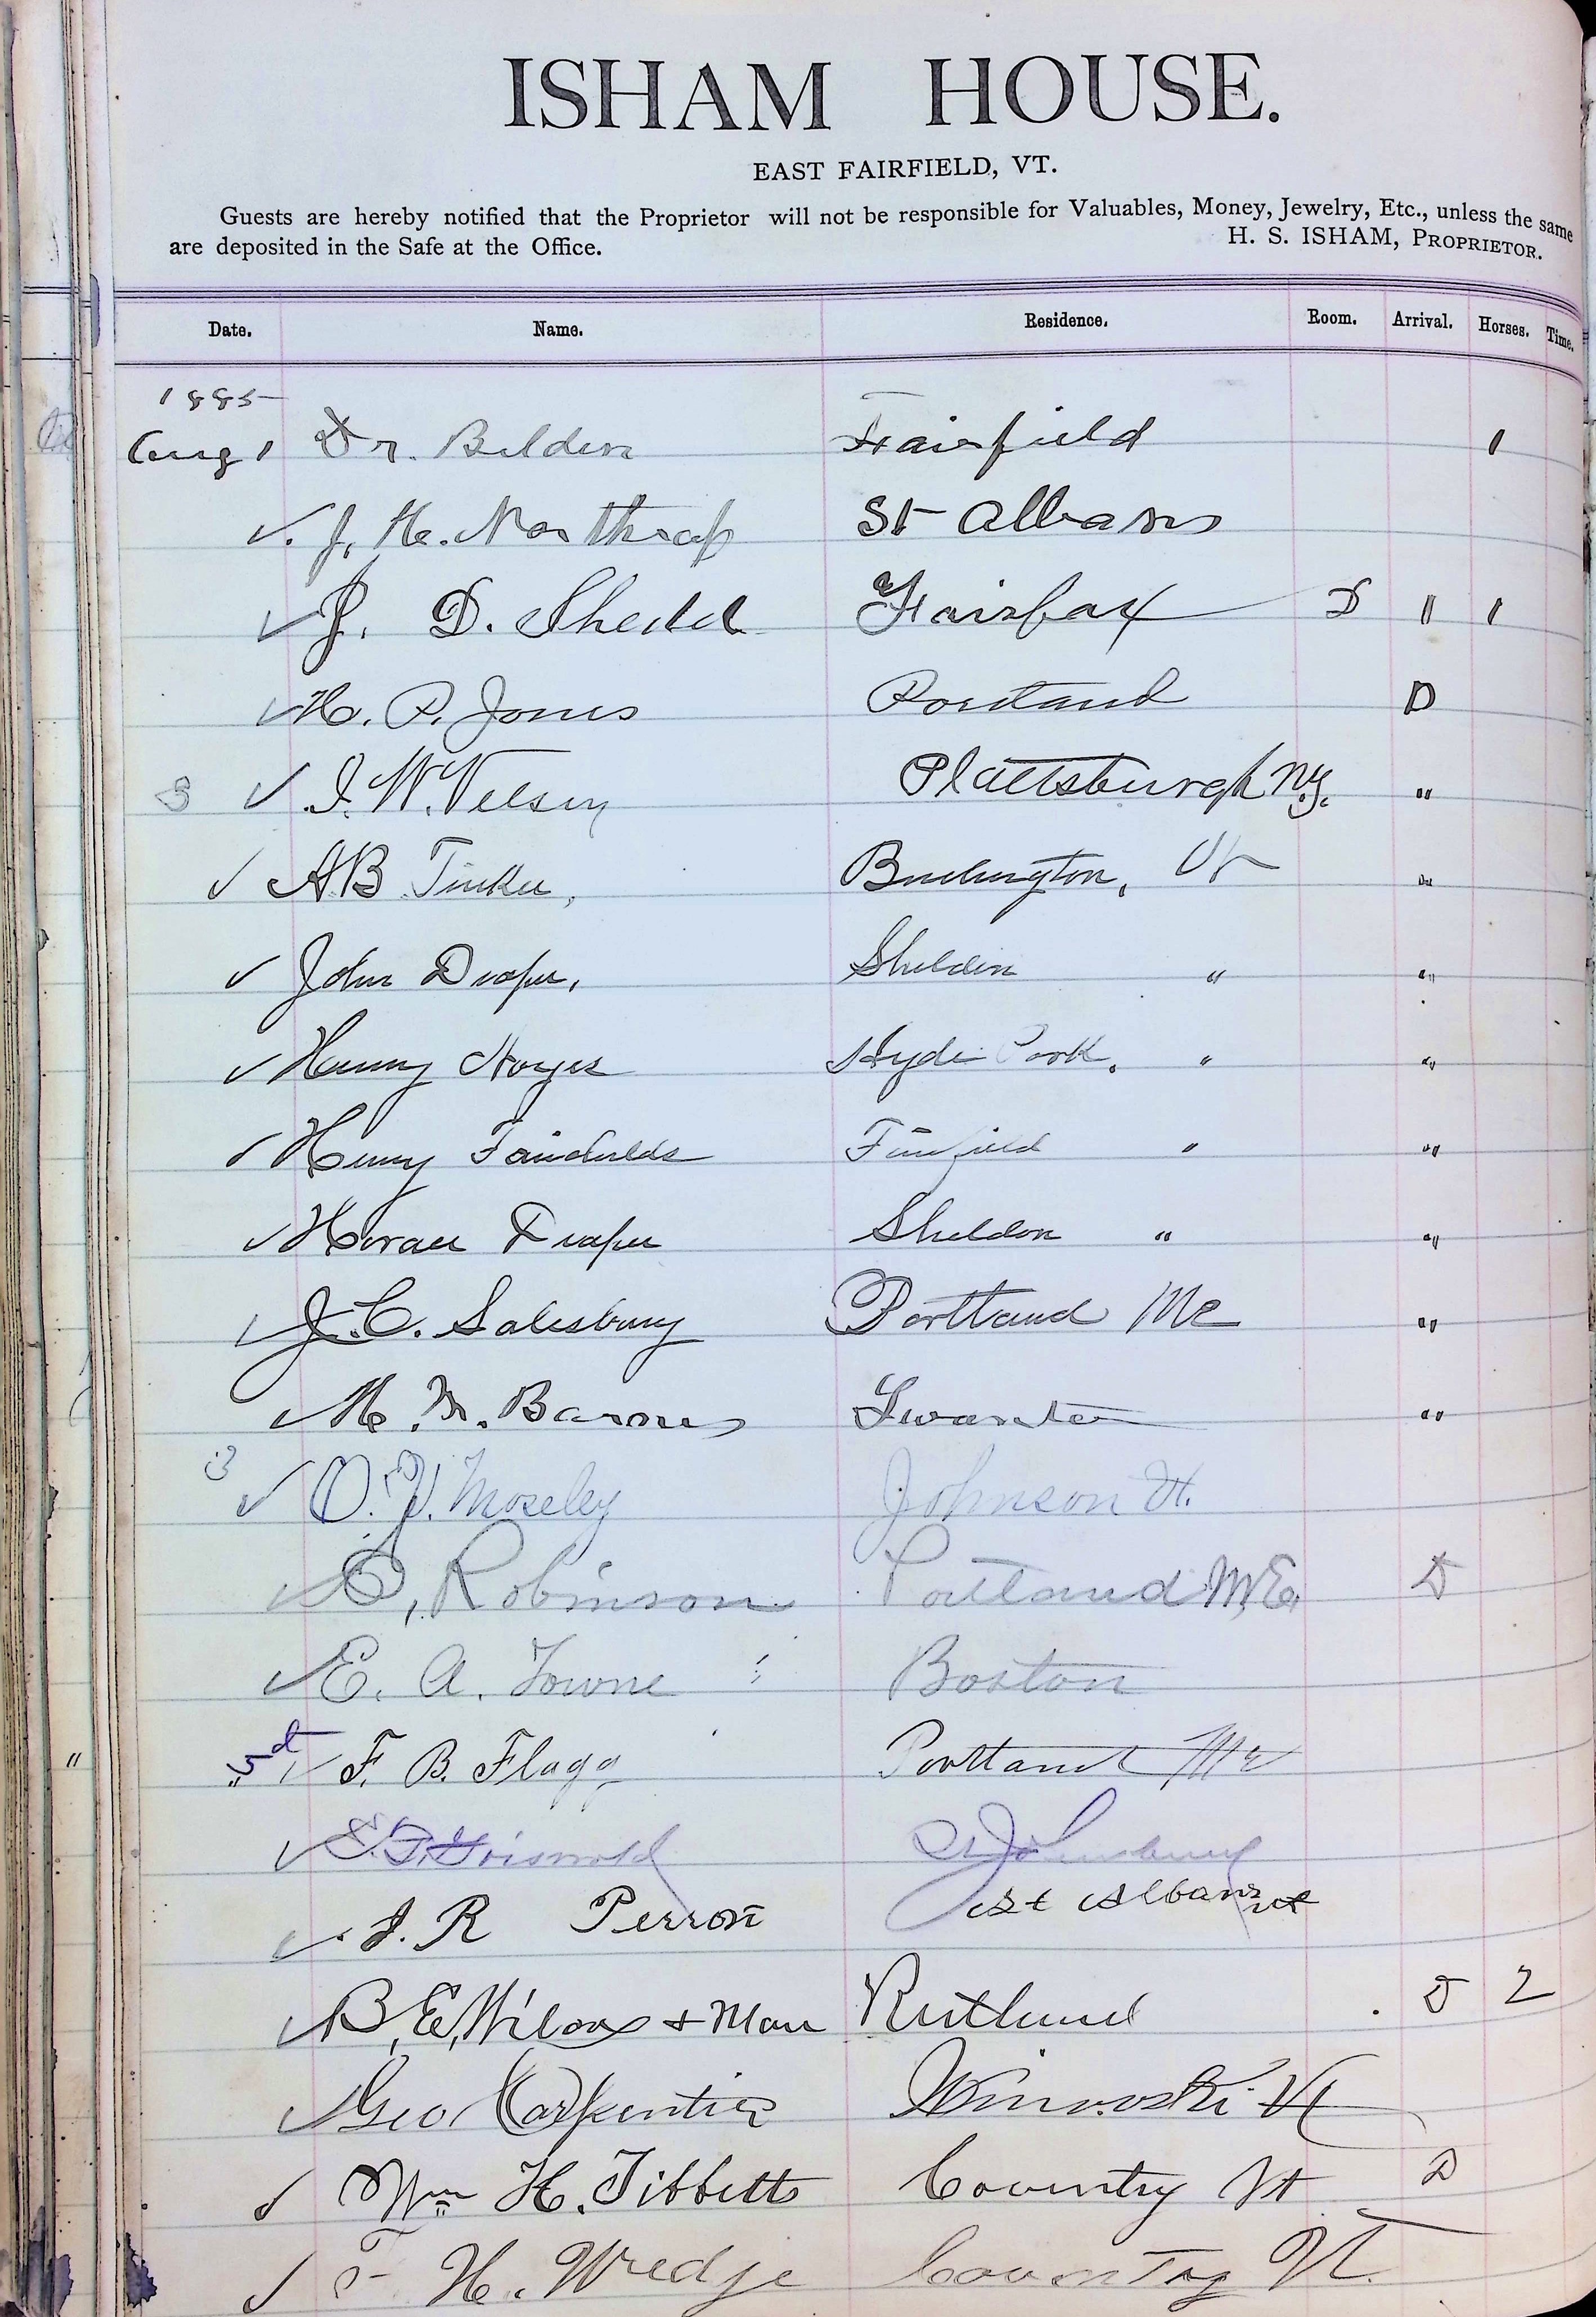 ISHAM HOUSE.
EAST FAIRFIELD, VT.
Guests are hereby notified that the Proprietor will not be responsible for Valuables, Money, Jewelry, Etc., unless the same
are deposited in the Safe at the Office. H. S. ISHAM, PROPRIETOR.
Date. Name. Residence. Room. Arrival. Horses. Time.
1885
Aug 1 Dr. Belden Fairfield 1
✓. J. H. Northrop St Albans
✓ J. D. Shedd Fairfax D 11 1
✓ H. P. Jones Portland D
3 ✓ J. W. Plattsburgh N.Y. "
✓ AB Tinker, Burlington, Vt "
✓ John Draper, Sheldon " "
✓ Henry Noyes Hyde Park. " "
✓ Henry Fairchilds Fairfield " "
✓ Horace Draper Sheldon " "
✓ J. C. Salesbury Portland Me "
✓ M. Barnes Swanton "
3 ✓ O. Moseley Johnson Vt.
✓ C. Robinson Portland M.E. D
✓ E. A. Towne Boston
" ✓ F. B. Flagg Portland Me
✓ Griswold St Johnsbury
✓ J. R Perron St Albans vt
✓ B. E. Wilcox + Man Rutland D 2
✓ Geo Carpentier Winooski Vt
✓ Wm H. Tibbetts Coventry Vt D
✓ F H. Wredge Coventry Vt.